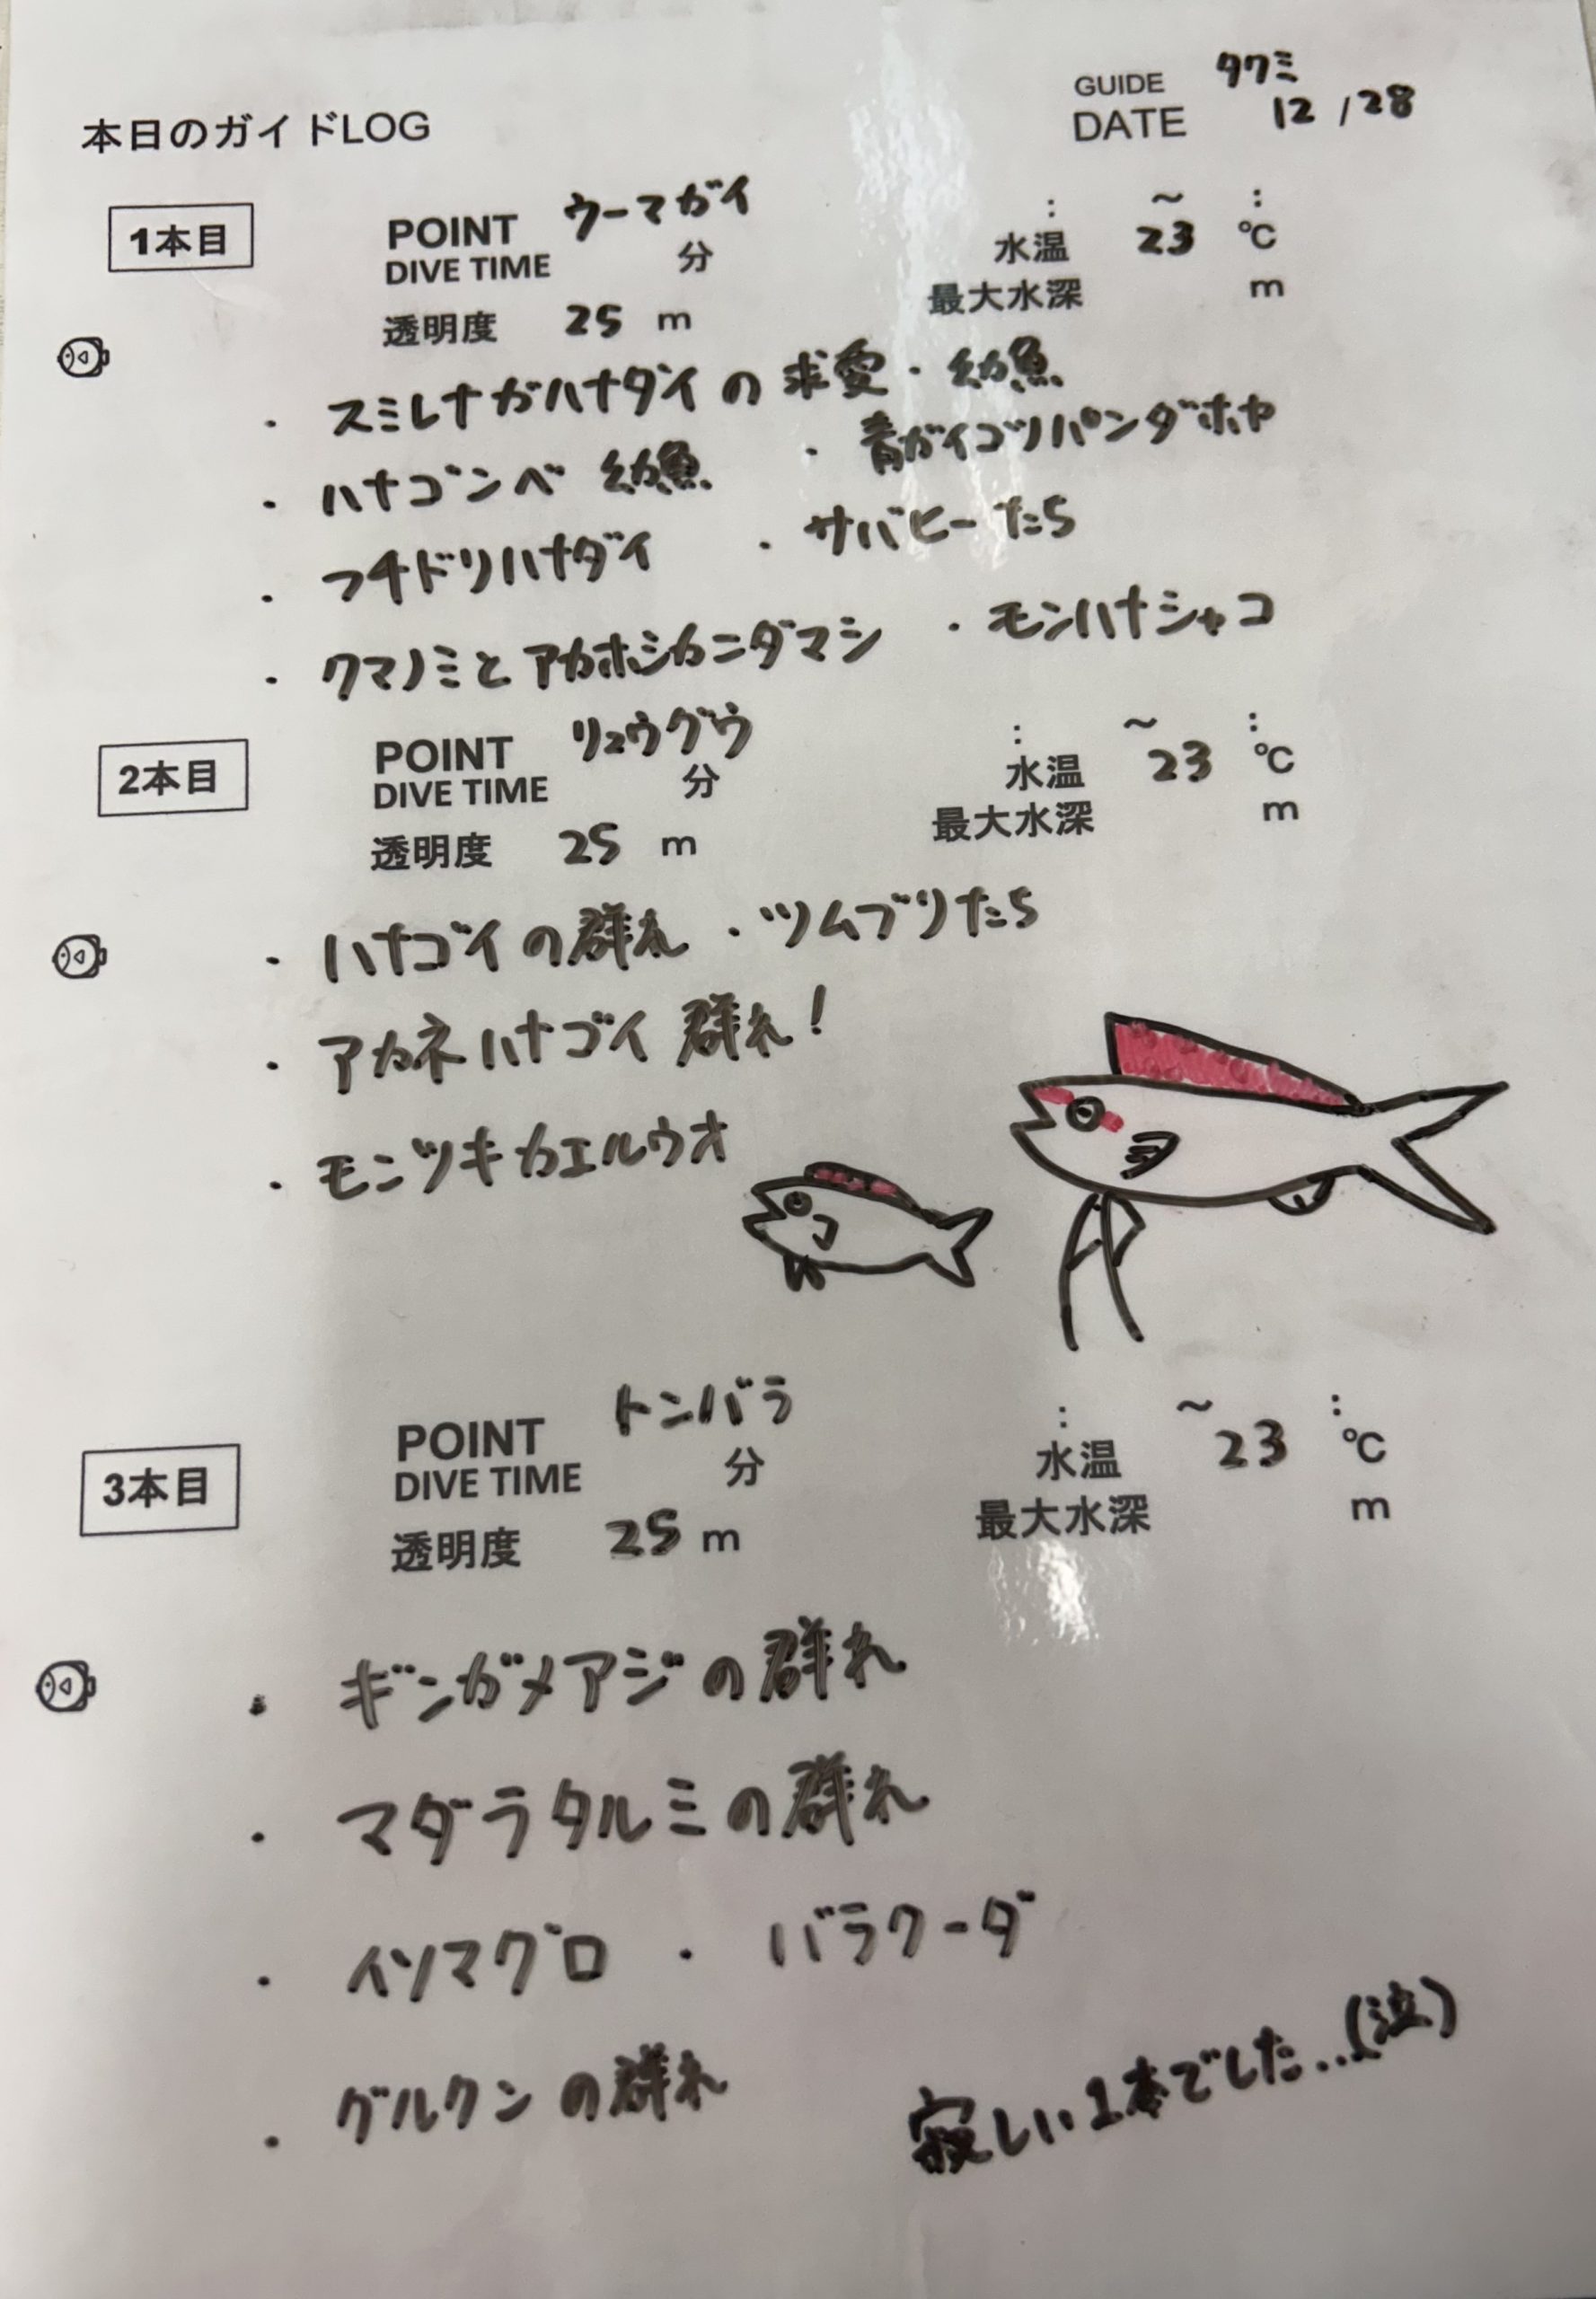 GUIDE タクミ
本日のガイドLOG DATE 12/28
1本目 POINT ウーマガイ : ～ :
DIVE TIME 分 水温 23 ℃
透明度 25 m 最大水深 m
・スミレナガハナダイの求愛・幼魚
・ハナゴンベ 幼魚 ・青ガイコツパンダホヤ
・フチドリハナダイ ・サバヒーたち
・クマノミとアカホシカニダマシ ・モンハナシャコ
2本目 POINT リュウグウ : ～ :
DIVE TIME 分 水温 23 ℃
透明度 25 m 最大水深 m
・ハナゴイの群れ ・ツムブリたち
・アカネハナゴイ 群れ!
・モンツキカエルウオ
3本目 POINT トンバラ : ～ :
DIVE TIME 分 水温 23 ℃
透明度 25 m 最大水深 m
・ギンガメアジの群れ
・マダラタルミの群れ
・イソマグロ ・バラクーダ
・グルクンの群れ
寂しい1本でした...(泣)